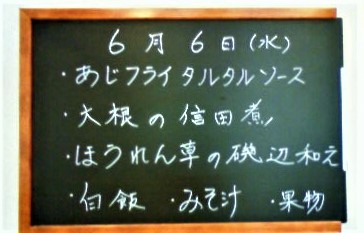 6月6日(水)
・あじフライタルタルソース
・大根の信田煮
・ほうれん草の磯辺和え
・白飯 ・みそ汁 ・果物